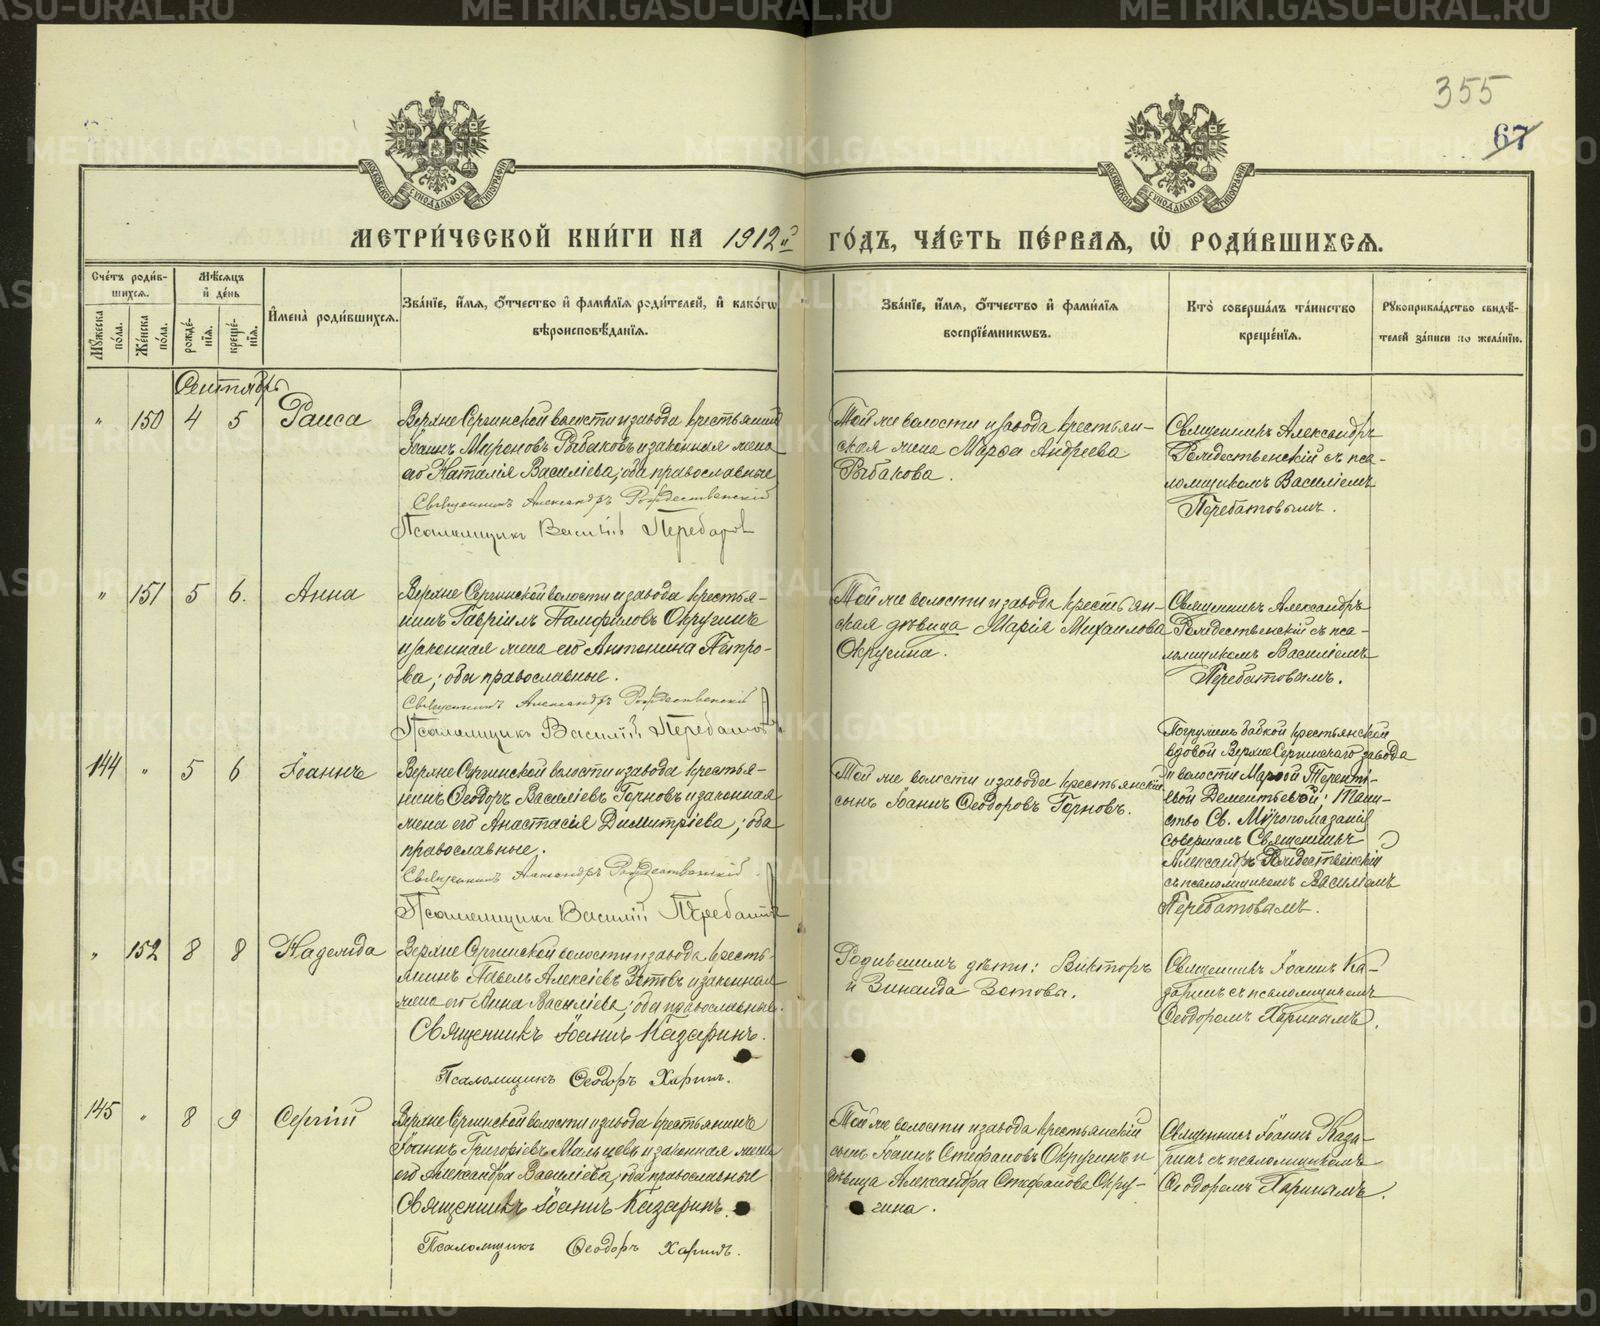 METRIKI.GASO-URAL.RU
355
67
МОСКОВСКОЙ СУНОДАЛЬНОЙ ТИПОГРАФІИ
МОСКОВСКОЙ СУНОДАЛЬНОЙ ТИПОГРАФІИ
МЕТРИ́ЧЕСКОЙ КНИ́ГИ НА 1912й ГО́ДЪ, ЧА́СТЬ ПЕ́РВАЯ, Ѽ РОДИ́ВШИХСЯ.
Сче́тъ роди́в-
шихся.
Му́жеска по́ла.
Же́нска по́ла.
Мѣ́сяцъ
и҆ де́нь
рожде́-
нїя.
креще́-
нїя.
И҆мена̀ роди́вшихся.
Зва́нїе, и҆́мя, ѻ҆́тчество и҆ фами́лїя роди́телей, и҆ како́гѡ
вѣроисповѣ́данїя.
Зва́нїе, и҆́мя, ѻ҆́тчество и҆ фами́лїя
воспрїе́мниковъ.
Кто̀ соверша́лъ та́инство
креще́нїя.
Рукоприкла́дство свидѣ́-
телей за́писи по жела́нїю.
Сентябрь
" 150 4 5 Раиса
Верхне Сергинской волости и завода крестьянинъ
Іоаннъ Мироновъ Рыбаковъ и законная жена
его Наталія Василіева; оба православные
Священникъ Александръ Рождественскій
Псаломщикъ Василій Перебатов
Той же волости и завода крестьян-
ская жена Марѳа Андреева
Рыбакова.
Священникъ Александръ
Рождественскій съ пса-
ломщикомъ Василіемъ
Перебатовымъ.
" 151 5 6. Анна
Верхне Сергинской волости и завода крестья-
нинъ Гавріилъ Памфиловъ Округинъ
и законная жена его Антонина Петро-
ва; оба православные.
Священникъ Александръ Рождественскій
Псаломщикъ Василій Перебатов
Той же волости и завода крестьян-
ская дѣвица Марія Михаилова
Округина.
Священникъ Александръ
Рождественскій съ пса-
ломщикомъ Василіемъ
Перебатовымъ.
144 " 5 6 Іоаннъ
Верхне Сергинской волости и завода крестья-
нинъ Ѳеодоръ Василіевъ Горновъ и законная
жена его Анастасья Димитріева; оба
православные.
Священникъ Александръ Рождественскій.
Псаломщикъ Василій Перебатов
Той же волости и завода крестьянскій
сынъ Іоаннъ Ѳеодоровъ Горновъ.
Погружен бабкой крестьянской
вдовой Верхне Сергинскаго завода
и волости Марѳой Теренті-
евой Дементьевой; Таин-
ство Св. Мѵропомазанія
совершалъ Священникъ
Александръ Рождественскій
съ псаломщикомъ Василіемъ
Перебатовымъ.
" 152 8 8 Надежда
Верхне Сергинской волости и завода кресть-
янинъ Павелъ Алексіевъ Зотовъ и законная
жена его Анна Василіева; оба православные.
Священникъ Іоаннъ Казаринъ.
Псаломщикъ Ѳеодоръ Харинъ.
Родившимъ дѣти: Викторъ
и Зинаида Зотовы.
Священникъ Іоаннъ Ка-
заринъ съ псаломщикомъ
Ѳеодоромъ Харинымъ.
145 " 8 9 Сергій
Верхне Сергинской волости и завода крестьянинъ
Іоаннъ Григоріевъ Мальцевъ и законная жена
его Александра Василіева; оба православные
Священникъ Іоаннъ Казаринъ.
Псаломщикъ Ѳеодоръ Харинъ.
Той же волости и завода крестьянскій
сынъ Іоаннъ Стефановъ Округинъ и
дѣвица Александра Стефанова Окру-
гина.
Священникъ Іоаннъ Каза-
ринъ съ псаломщикомъ
Ѳеодоромъ Харинымъ.